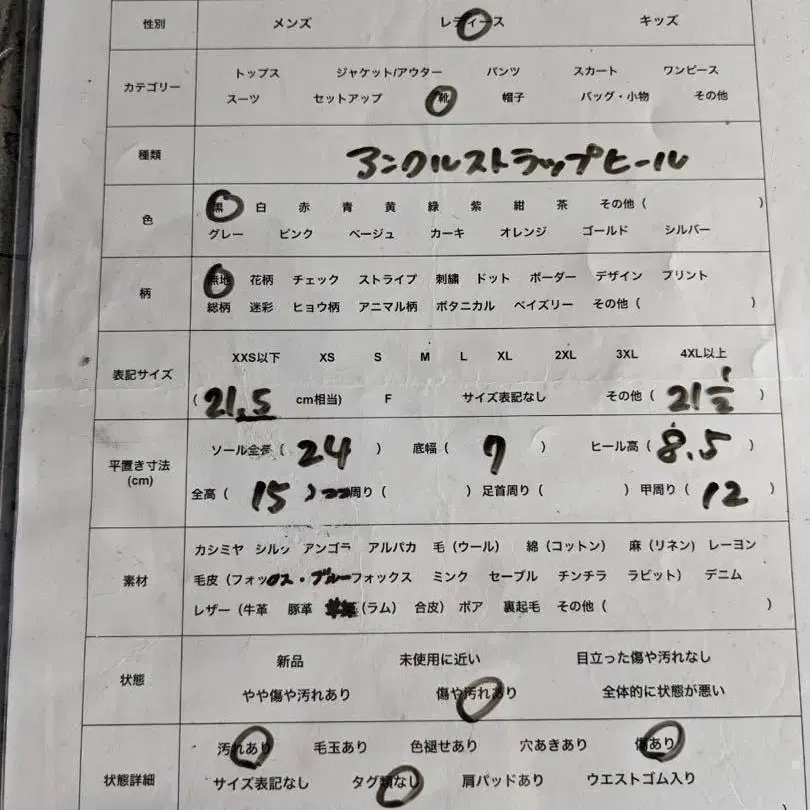 性別 メンズ レディース キッズ
カテゴリー
トップス ジャケット/アウター パンツ スカート ワンピース
スーツ セットアップ 靴 帽子 バッグ・小物 その他
種類 アンクルストラップヒール
色
黒 白 赤 青 黄 緑 紫 紺 茶 その他( )
グレー ピンク ベージュ カーキ オレンジ ゴールド シルバー
柄
無地 花柄 チェック ストライプ 刺繍 ドット ボーダー デザイン プリント
総柄 迷彩 ヒョウ柄 アニマル柄 ボタニカル ペイズリー その他( )
表記サイズ
XXS以下 XS S M L XL 2XL 3XL 4XL以上
(21.5 cm相当) F サイズ表記なし その他(21 1/2)
平置き寸法
(cm)
ソール全長(24) 底幅(7) ヒール高(8.5)
全高(15) 周り( ) 足首周り( ) 甲周り(12)
素材
カシミヤ シルク アンゴラ アルパカ 毛(ウール) 綿(コットン) 麻(リネン) レーヨン
毛皮(フォックス・ブルーフォックス ミンク セーブル チンチラ ラビット) デニム
レザー(牛革 豚革 (ラム) 合皮) ボア 裏起毛 その他( )
状態
新品 未使用に近い 目立った傷や汚れなし
やや傷や汚れあり 傷や汚れあり 全体的に状態が悪い
状態詳細
汚れあり 毛玉あり 色褪せあり 穴あきあり 傷あり
サイズ表記なし タグ類なし 肩パッドあり ウエストゴム入り